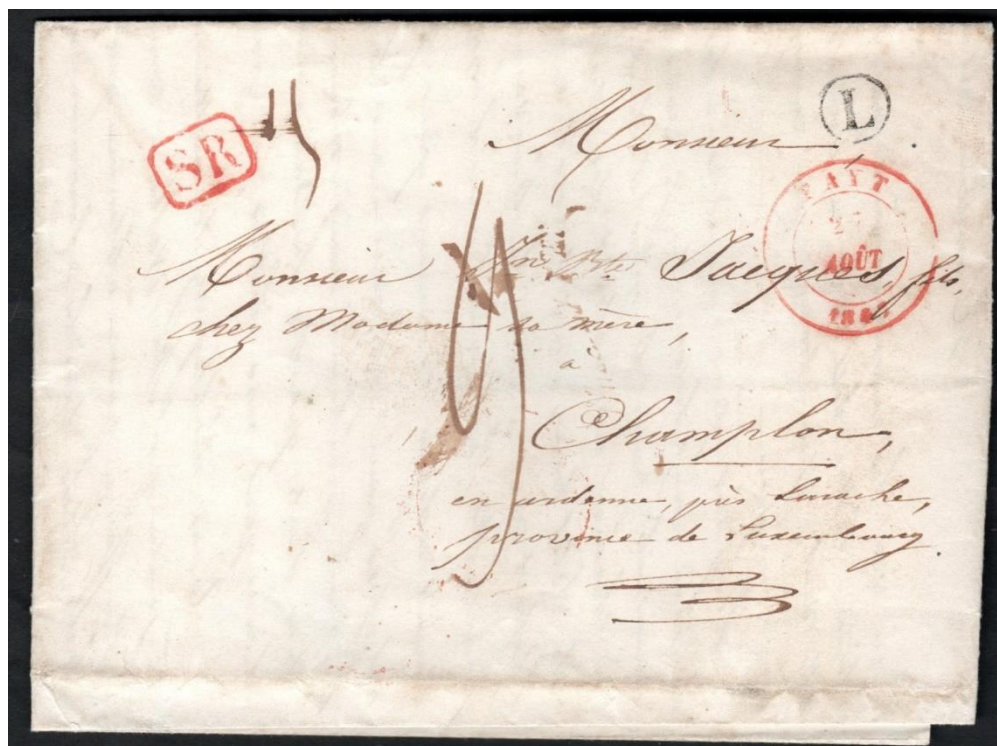 SR
L
Monsieur,
FAYT
27
AOÛT
Monsieur Jn. Bte Jacques, fils,
chez Madame sa mère,
à
Champlon,
en ardenne, près Laroche,
province de Luxembourg.